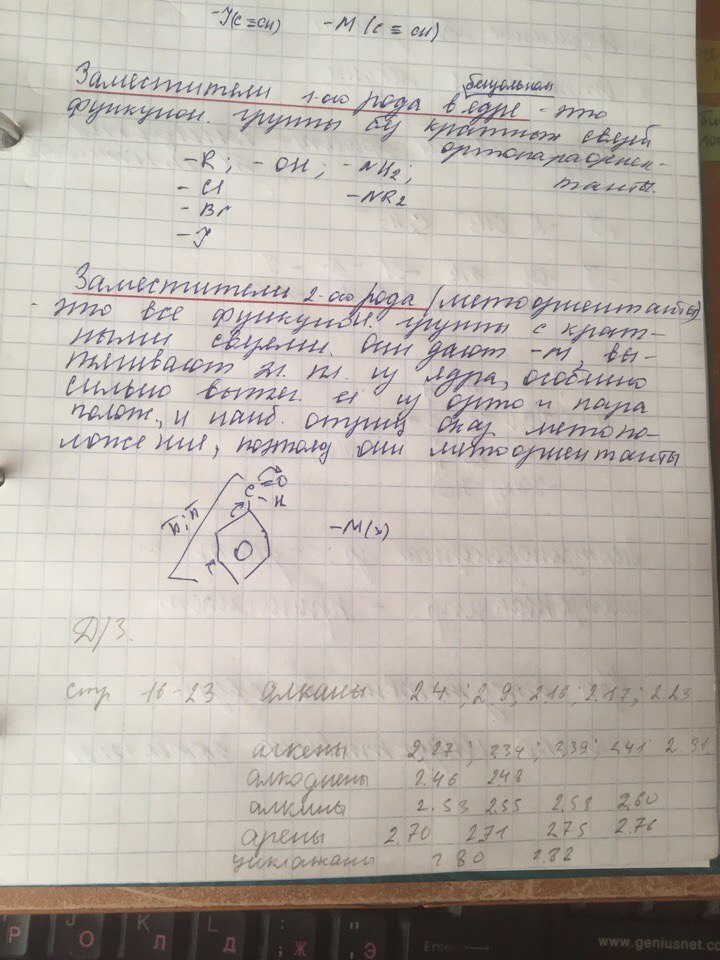 -J(C≡CH) -M (C≡CH)
Заместители 1-ого рода в бензольном ядре - это
функцион. группы без кратных связей
ортопараориен-
танты.
-R; -OH; -NH2;
-Cl -NR2
-Br
-J
Заместители 2-ого рода (метаориентанты)
- это все функцион. группы с крат-
ными связями. Они дают -M, вы-
тягивают эл. пл. из ядра, особенно
сильно вытяг. ē из орто и пара
полож., и наиб. отриц. оказ. метапо-
ложения, поэтому они метаориентанты
C=O
-H
π;π
-M(x)
Д/З.
стр 16-23 алканы 2.4; 2.9; 2.16; 2.17; 2.23
алкены 2.27; 2.34; 2.39; 2.41 2.31
алкодиены 2.46 2.48
алкины 2.53 2.55 2.58 2.60
арены 2.70 2.71 2.75 2.76
циклоалканы 2.80 2.82
Р О Л Д Ж Э
K L ; "
Enter
www.geniusnet.co